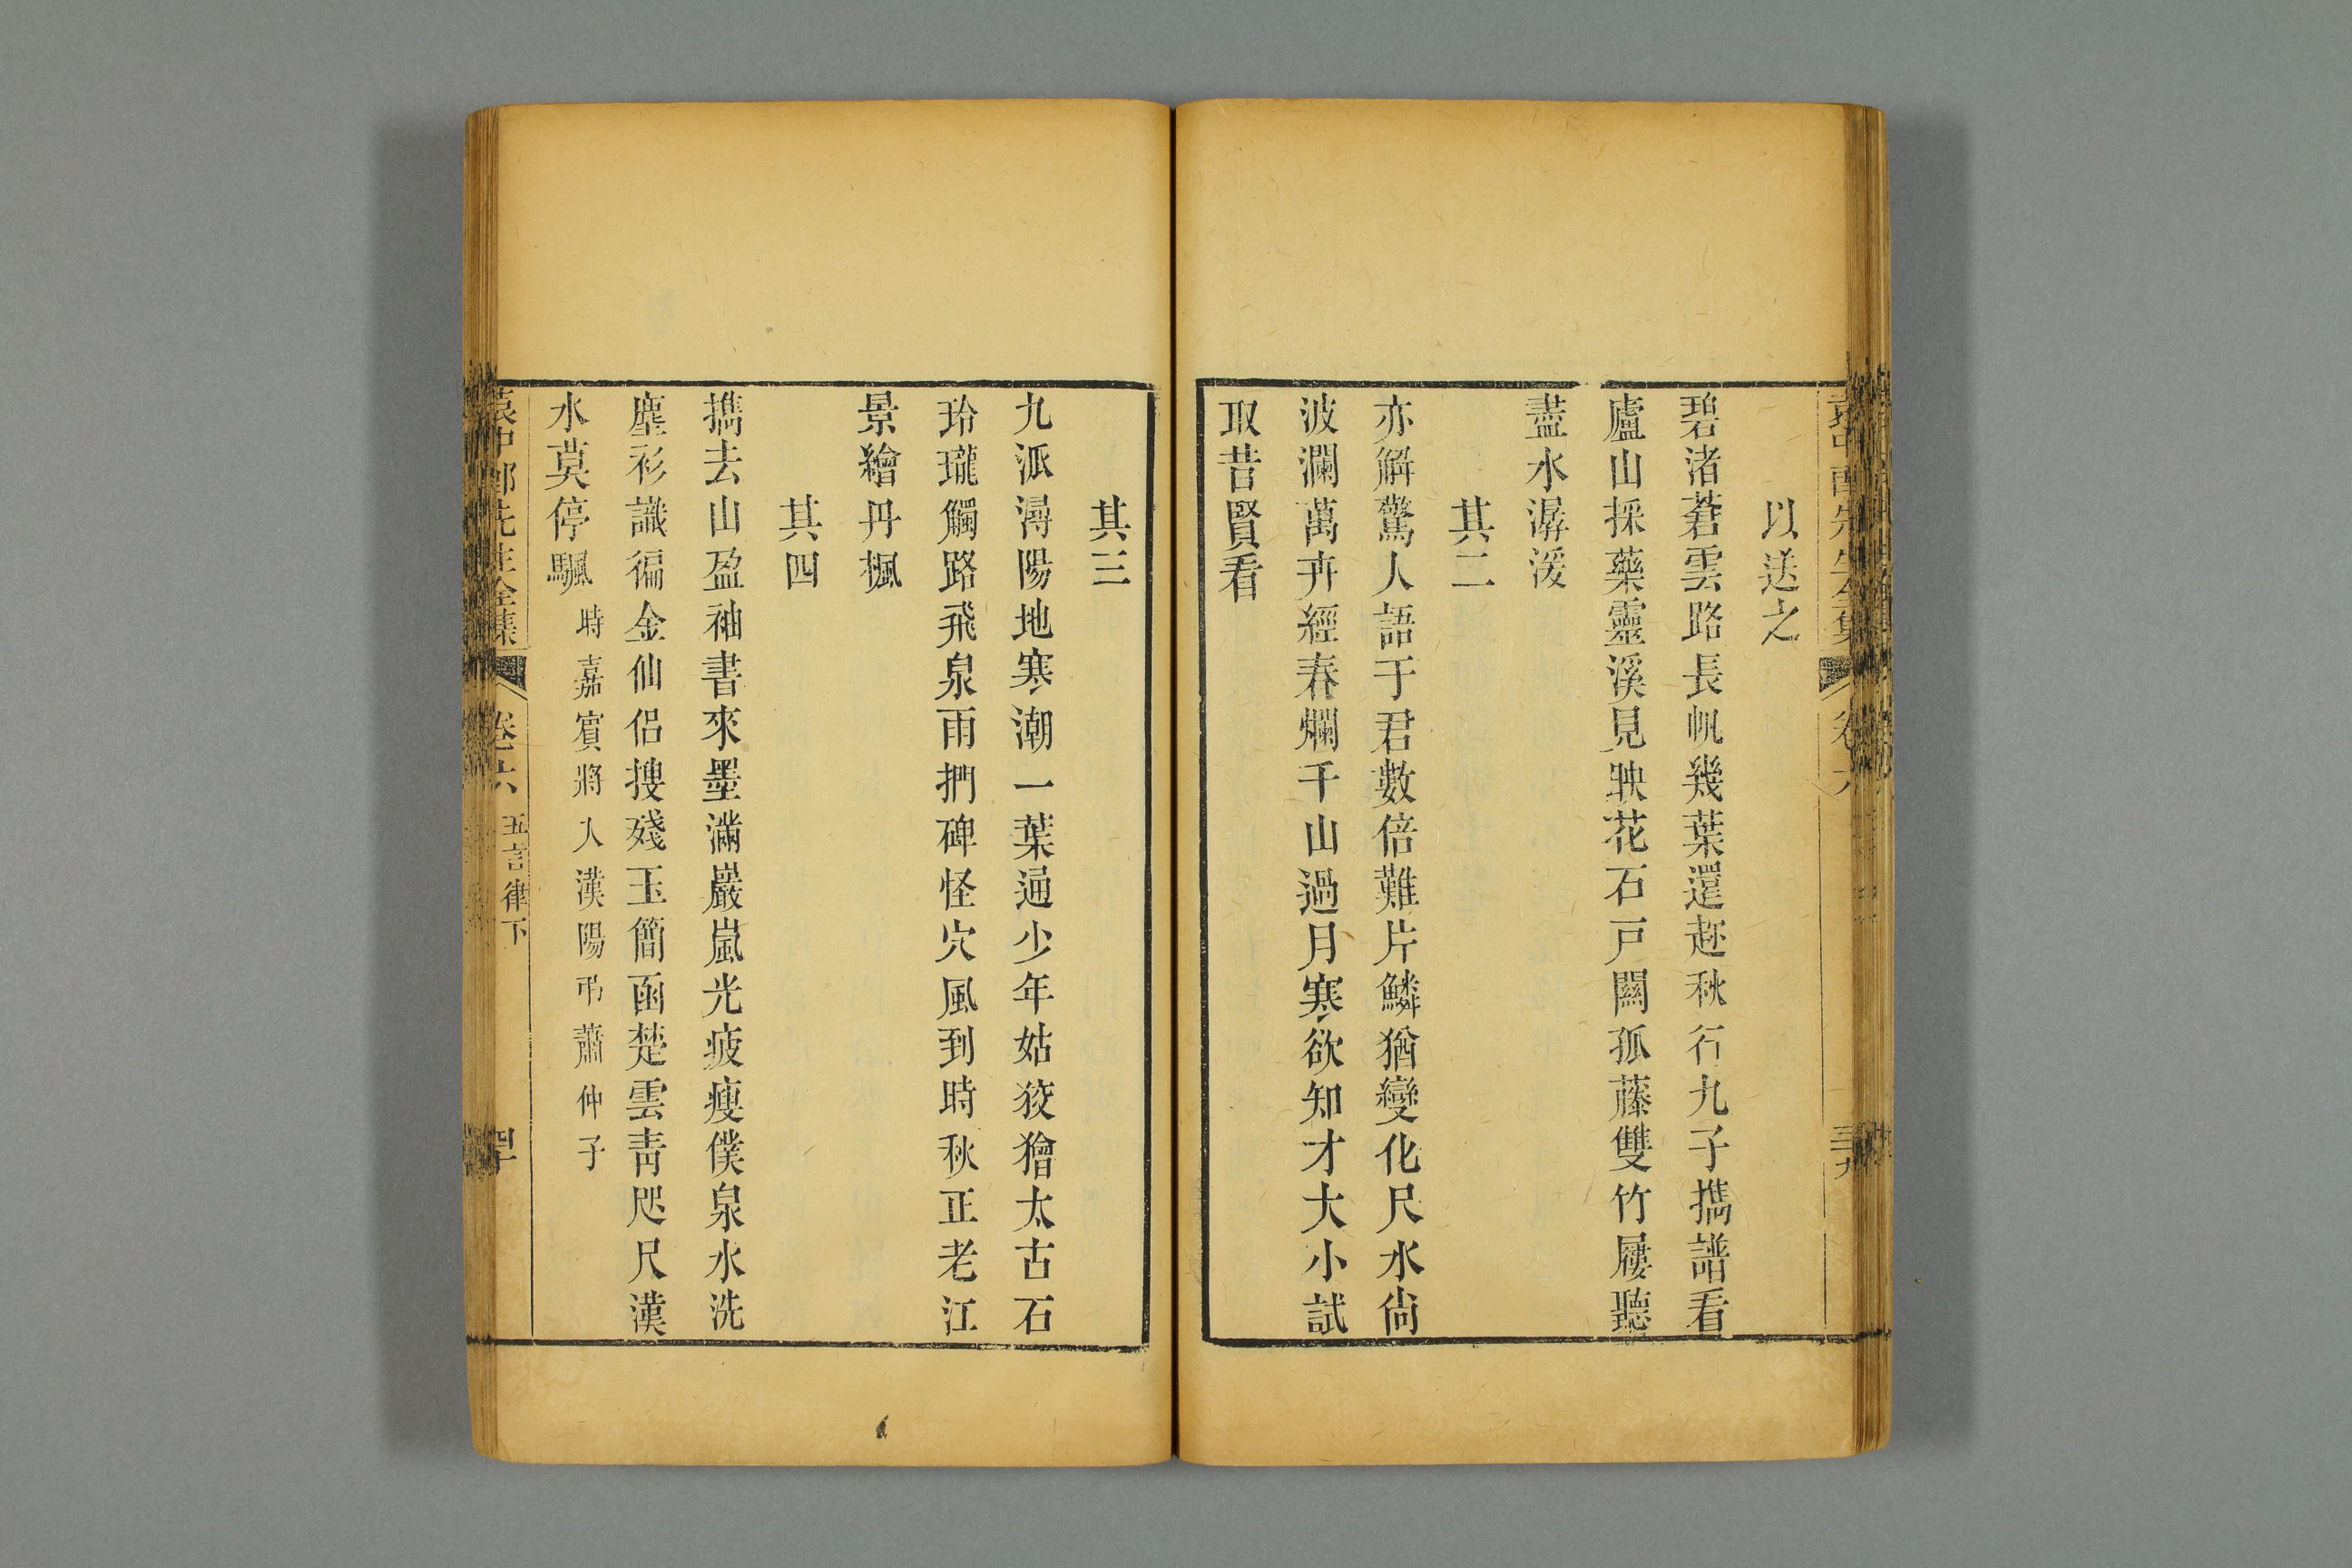 袁中郎先生全集 卷六 三十九
以送之
碧渚蒼雲路長帆幾葉還趂秋行九子攜譜看
廬山採藥靈溪見映花石戸關孤藤雙竹屨聽
盡水潺湲
其二
亦解驚人語于君數倍難片鱗猶變化尺水尙
波瀾萬卉經春爛千山過月寒欲知才大小試
取昔賢看
其三
九派潯陽地寒潮一葉通少年姑狡獪太古石
玲瓏觸路飛泉雨捫碑怪穴風到時秋正老江
景繪丹楓
其四
攜去山盈袖書來墨滿巖嵐光疲瘦僕泉水洗
塵衫識徧金仙侶搜殘玉簡函楚雲靑咫尺漢
水莫停颿 時嘉賓將入漢陽弔蕭仲子
袁中郎先生全集 卷六 五言律下 四十